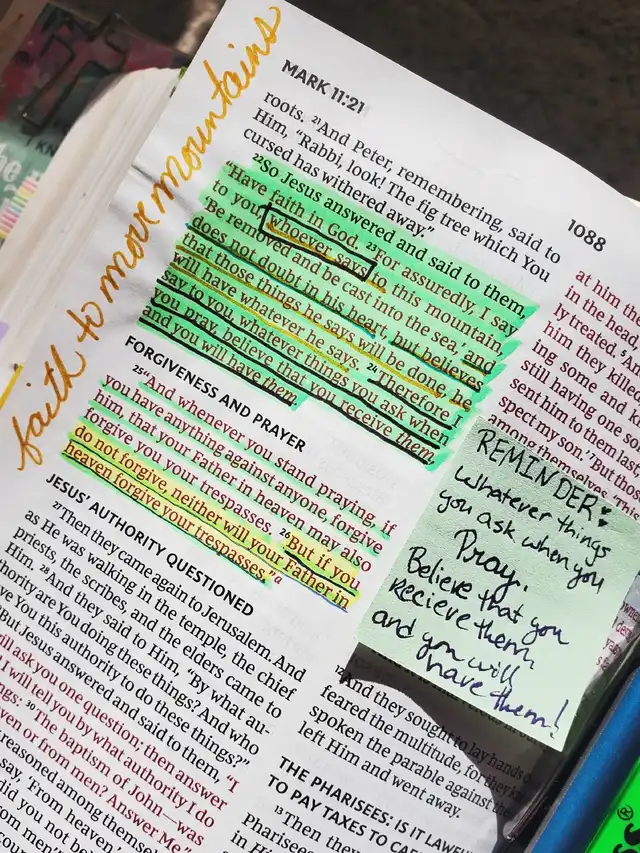 faith to move mountains
MARK 11:21
1088
roots. 21And Peter, remembering, said to
Him, "Rabbi, look! The fig tree which You
cursed has withered away."
22So Jesus answered and said to them,
"Have faith in God. 23For assuredly, I say
to you, whoever says to this mountain,
'Be removed and be cast into the sea,' and
does not doubt in his heart, but believes
that those things he says will be done, he
will have whatever he says. 24Therefore I
say to you, whatever things you ask when
you pray, believe that you receive them,
and you will have them.
FORGIVENESS AND PRAYER
25"And whenever you stand praying, if
you have anything against anyone, forgive
him, that your Father in heaven may also
forgive you your trespasses. 26But if you
do not forgive, neither will your Father in
heaven forgive your trespasses."a
JESUS' AUTHORITY QUESTIONED
27Then they came again to Jerusalem. And
as He was walking in the temple, the chief
priests, the scribes, and the elders came to
Him. 28And they said to Him, "By what au-
thority are You doing these things? And who
gave You this authority to do these things?"
But Jesus answered and said to them, "I
will ask you one question; then answer
I will tell you by what authority I do
things: 30The baptism of John—was
heaven or from men? Answer Me."
reasoned among themselves
say, 'From heaven,'
did you not
men'"
at him
in the head
ly treated. 5
him they killed
ing some and
still having one so
sent him to them last
spect my son.' But tho
among themselves, 'This
REMINDER:
Whatever things
you ask when you
Pray.
Believe that you
recieve them
and you will
have them!
12And they sought to lay hands
feared the multitude, for they
spoken the parable against
left Him and went away.
THE PHARISEES: IS IT LAWFUL
TO PAY TAXES TO CAE
13Then they
Pharisees
in Hi